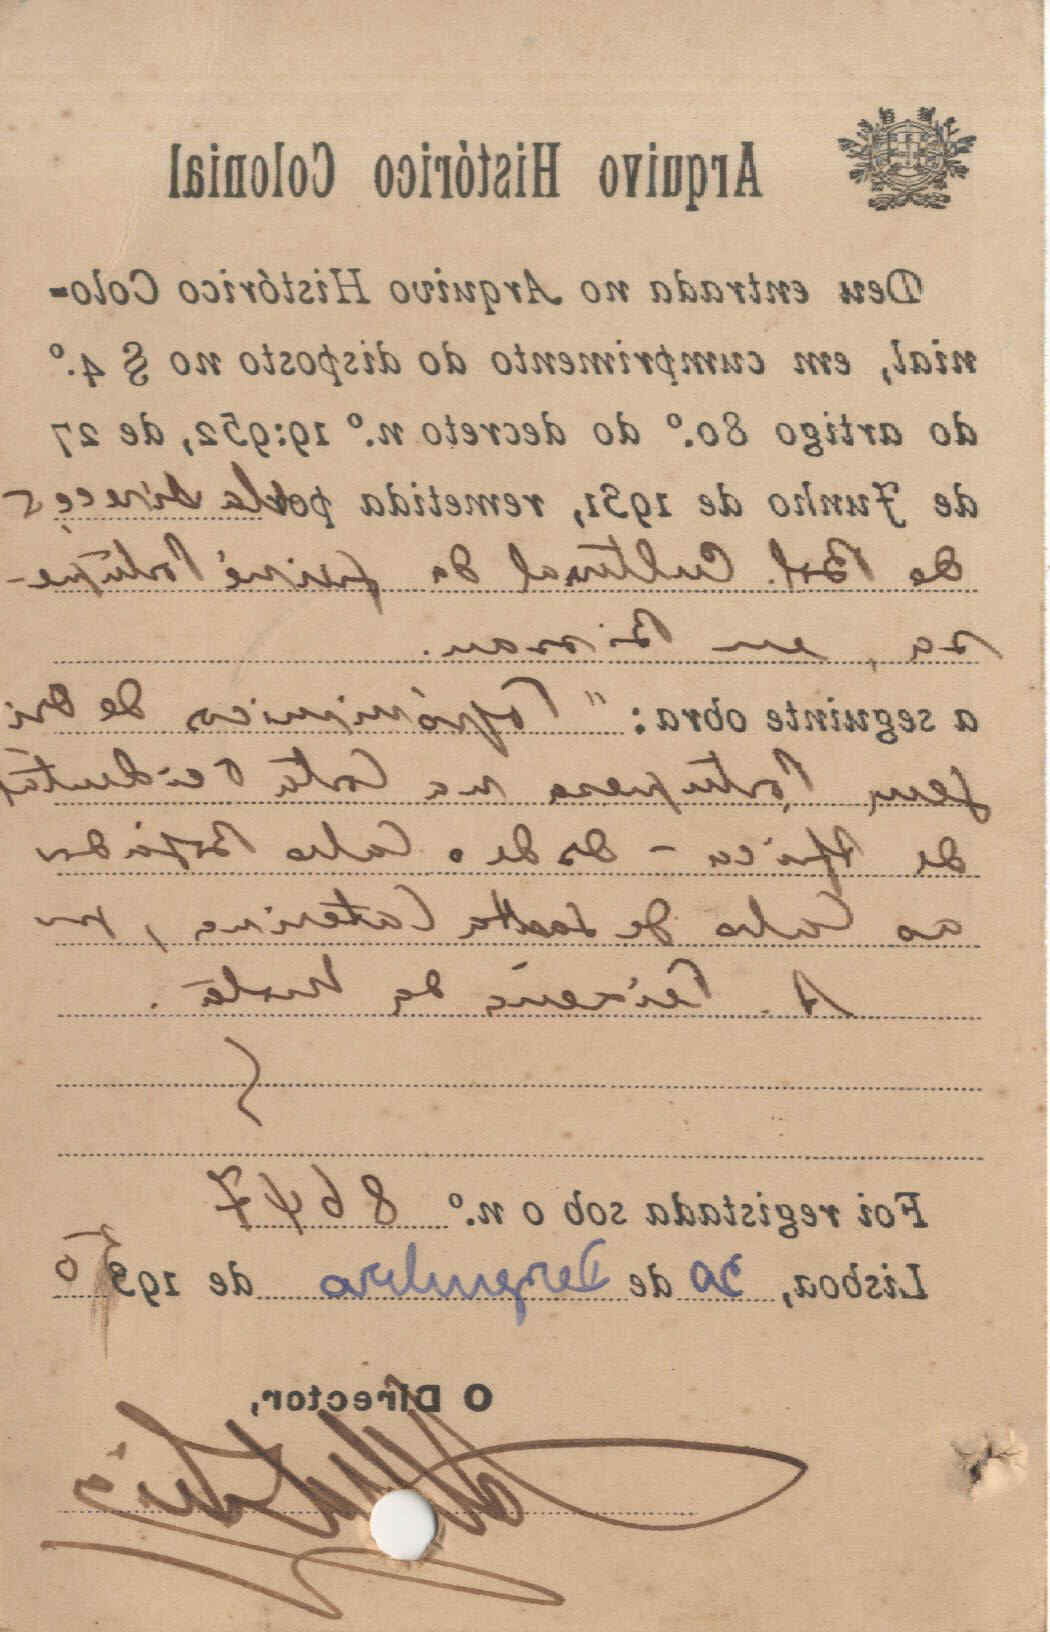 Arquivo Histórico Colonial
Deu entrada no Arquivo Histórico Colo-
nial, em cumprimento do disposto no § 4.º
do artigo 80.º do decreto n.º 19:952, de 27
de Junho de 1931, remetida pela Direcç
do Bol. Cultural da Guiné Portugue-
sa, em Bissau.
a seguinte obra: "Topónimicos de Ori
gem Portuguesa na Costa Ocidental
de Africa - desde o Cabo Bojador
ao Cabo de Santa Caterina,
A. Teixeira da Mota.
Foi registada sob o n.º 8647
Lisboa, 30 de Dezembro de 1950
O Director,